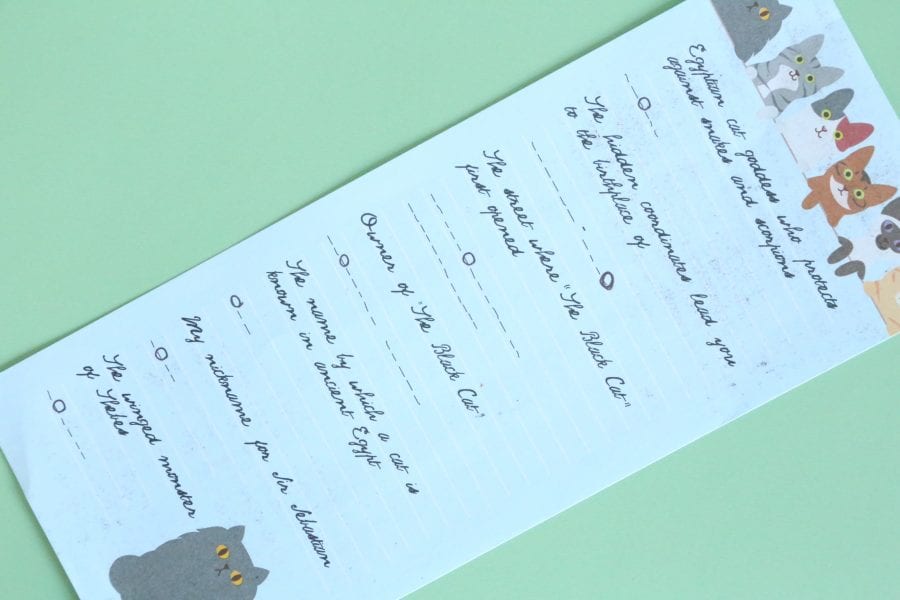 Egyptian cat goddess who protects
against snakes and scorpions
The hidden coordinates lead you
to the birthplace of
The street where "The Black Cat"
first opened
Owner of "The Black Cat"
The name by which a cat is
known in ancient Egypt
My nickname for Sir Sebastian
The winged monster
of Thebes